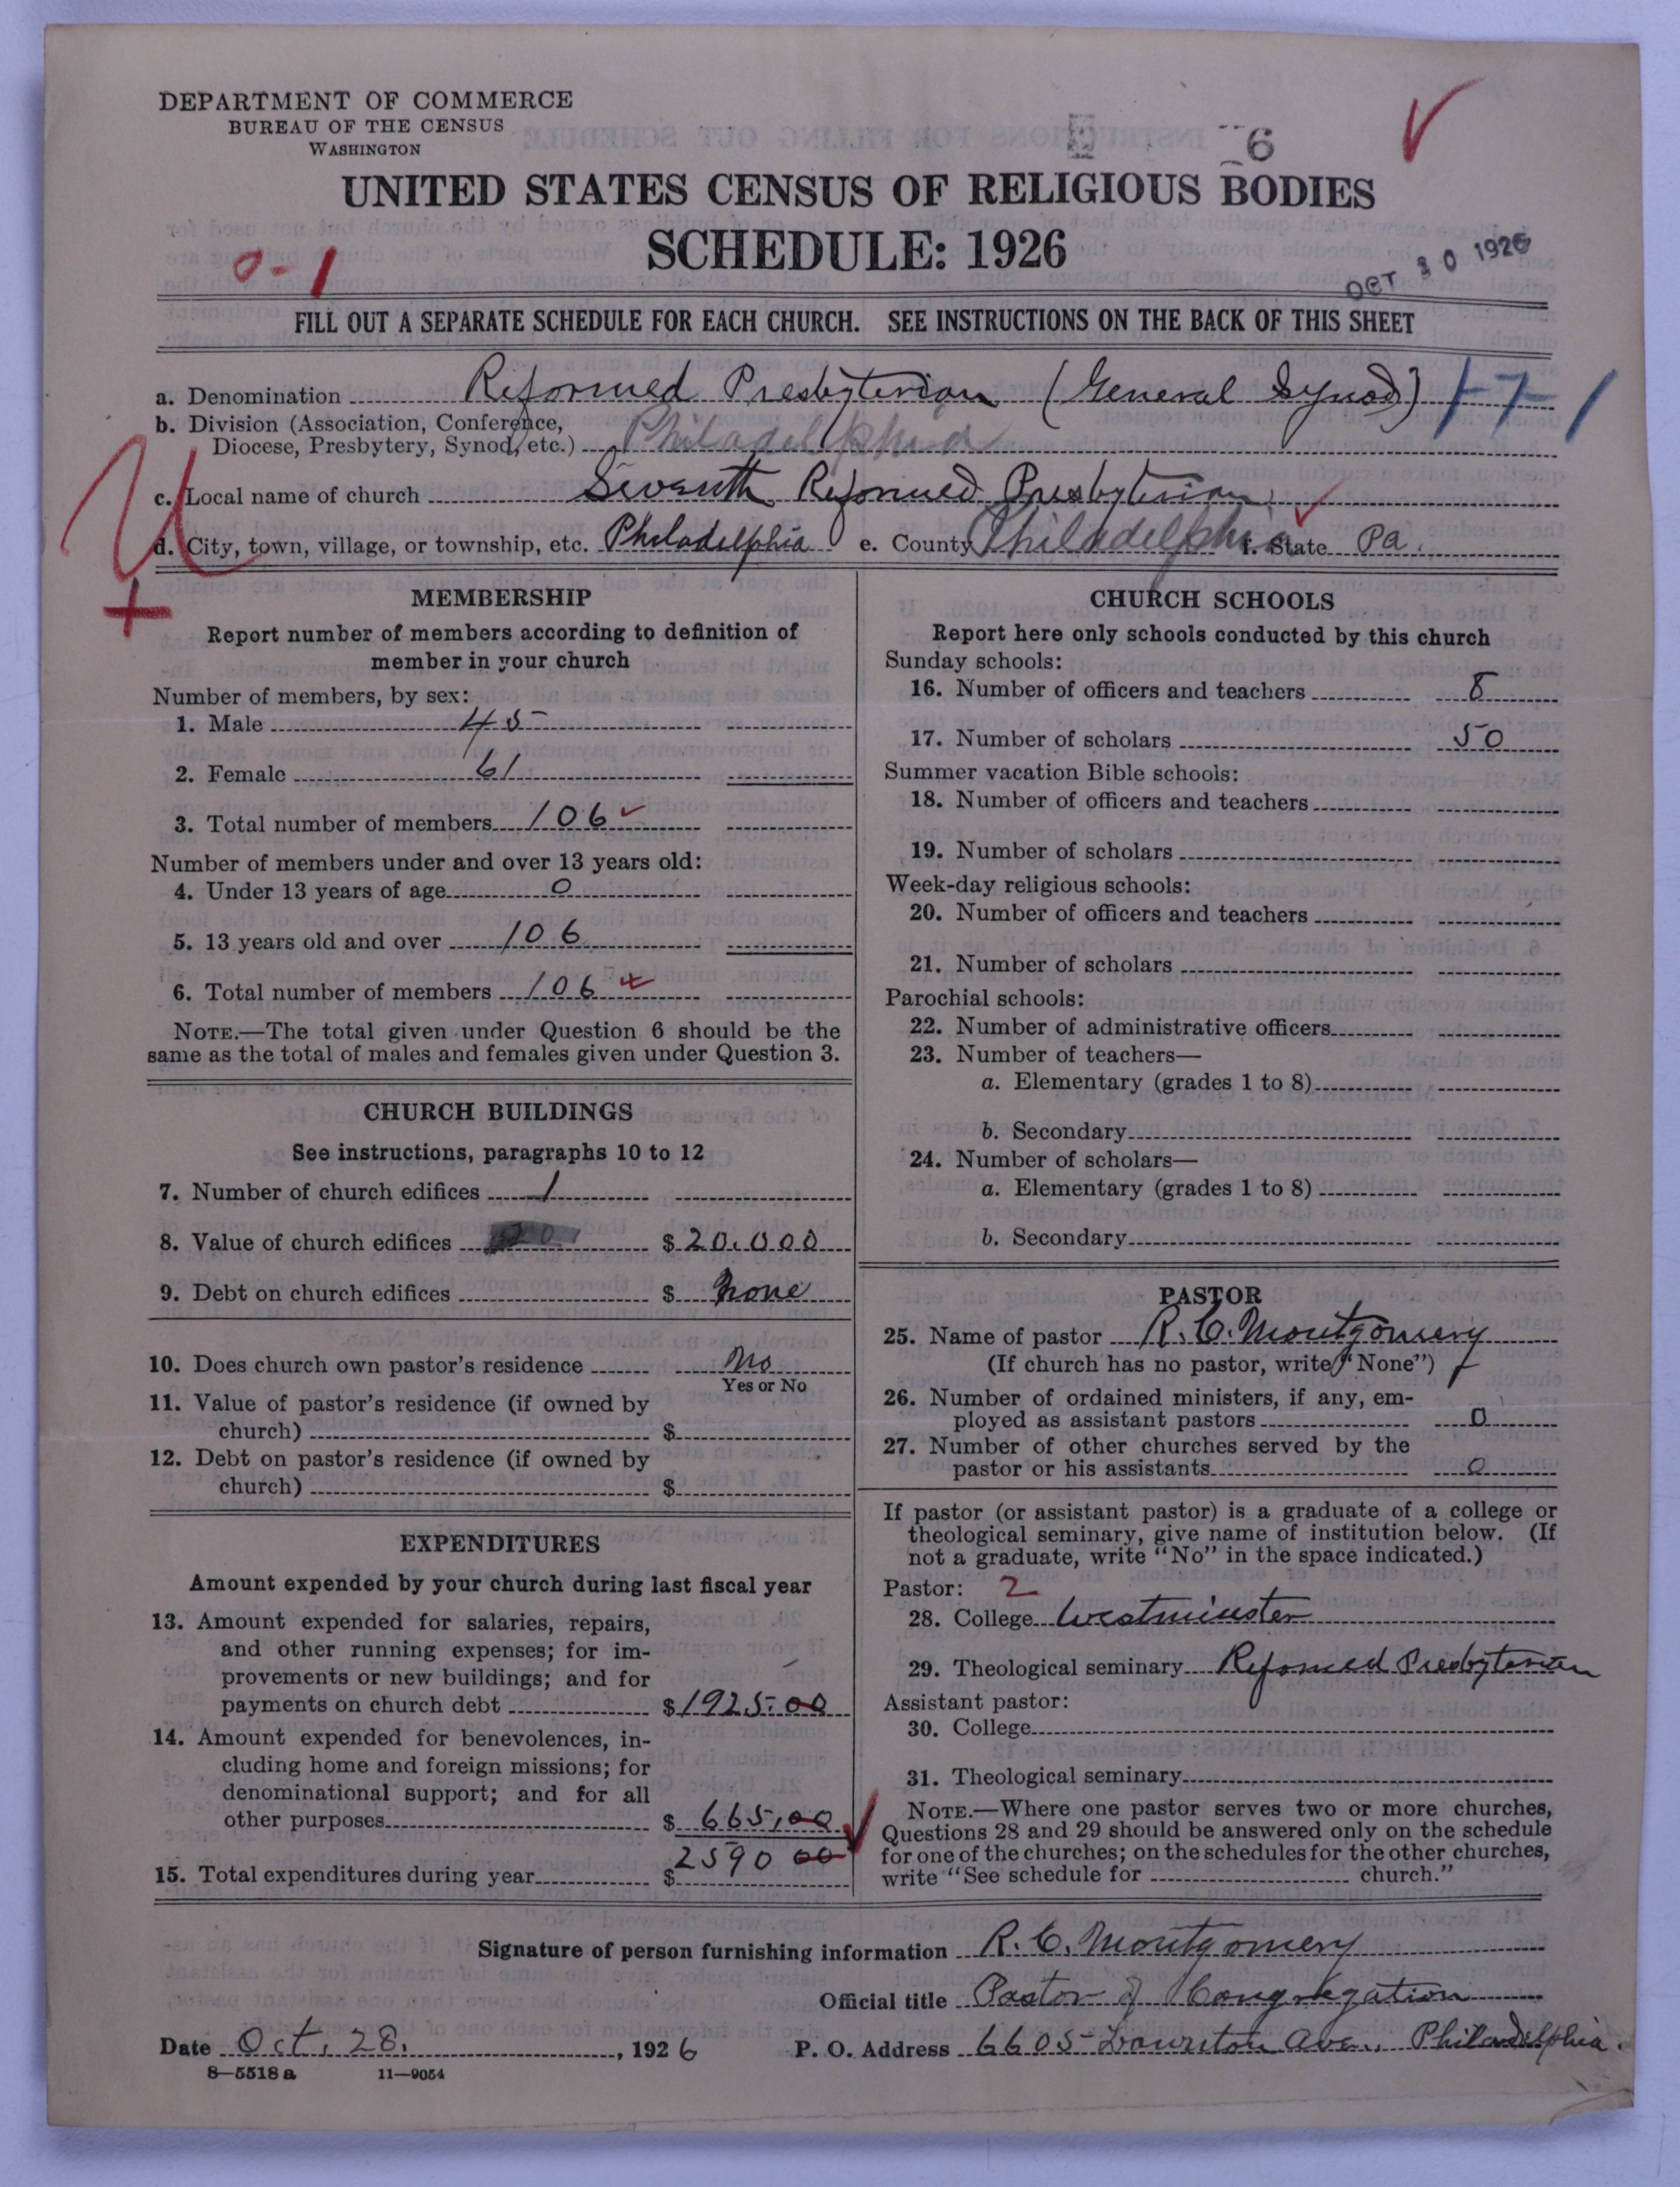 DEPARTMENT OF COMMERCE
BUREAU OF THE CENSUS
WASHINGTON
6
UNITED STATES CENSUS OF RELIGIOUS BODIES
SCHEDULE: 1926
0-1
OCT 30 1926
FILL OUT A SEPARATE SCHEDULE FOR EACH CHURCH. SEE INSTRUCTIONS ON THE BACK OF THIS SHEET
a. Denomination Reformed Presbyterian (General Synod) 17-1
b. Division (Association, Conference,
Diocese, Presbytery, Synod, etc.) Philadelphia
c. Local name of church Seventh Reformed Presbyterian
d. City, town, village, or township, etc. Philadelphia e. County Philadelphia f. State Pa.
MEMBERSHIP
Report number of members according to definition of
member in your church
Number of members, by sex:
1. Male 45
2. Female 61
3. Total number of members 106
Number of members under and over 13 years old:
4. Under 13 years of age 0
5. 13 years old and over 106
6. Total number of members 106
NOTE.—The total given under Question 6 should be the
same as the total of males and females given under Question 3.
CHURCH BUILDINGS
See instructions, paragraphs 10 to 12
7. Number of church edifices 1
8. Value of church edifices $ 20,000
9. Debt on church edifices $ none
10. Does church own pastor's residence No
Yes or No
11. Value of pastor's residence (if owned by
church) $
12. Debt on pastor's residence (if owned by
church) $
EXPENDITURES
Amount expended by your church during last fiscal year
13. Amount expended for salaries, repairs,
and other running expenses; for im-
provements or new buildings; and for
payments on church debt $ 1925.00
14. Amount expended for benevolences, in-
cluding home and foreign missions; for
denominational support; and for all
other purposes $ 665,00
15. Total expenditures during year $ 2590 00
CHURCH SCHOOLS
Report here only schools conducted by this church
Sunday schools:
16. Number of officers and teachers 8
17. Number of scholars 50
Summer vacation Bible schools:
18. Number of officers and teachers
19. Number of scholars
Week-day religious schools:
20. Number of officers and teachers
21. Number of scholars
Parochial schools:
22. Number of administrative officers
23. Number of teachers—
a. Elementary (grades 1 to 8)
b. Secondary
24. Number of scholars—
a. Elementary (grades 1 to 8)
b. Secondary
PASTOR
25. Name of pastor R. C. Montgomery
(If church has no pastor, write "None")
26. Number of ordained ministers, if any, em-
ployed as assistant pastors 0
27. Number of other churches served by the
pastor or his assistants 0
If pastor (or assistant pastor) is a graduate of a college or
theological seminary, give name of institution below. (If
not a graduate, write "No" in the space indicated.)
Pastor: 2
28. College Westminster
29. Theological seminary Reformed Presbyterian
Assistant pastor:
30. College
31. Theological seminary
NOTE.—Where one pastor serves two or more churches,
Questions 28 and 29 should be answered only on the schedule
for one of the churches; on the schedules for the other churches,
write "See schedule for church."
Signature of person furnishing information R. C. Montgomery
Official title Pastor of Congregation
Date Oct. 28. , 1926 P. O. Address 6605 Ave., Philadelphia.
8—5518 a 11—9054